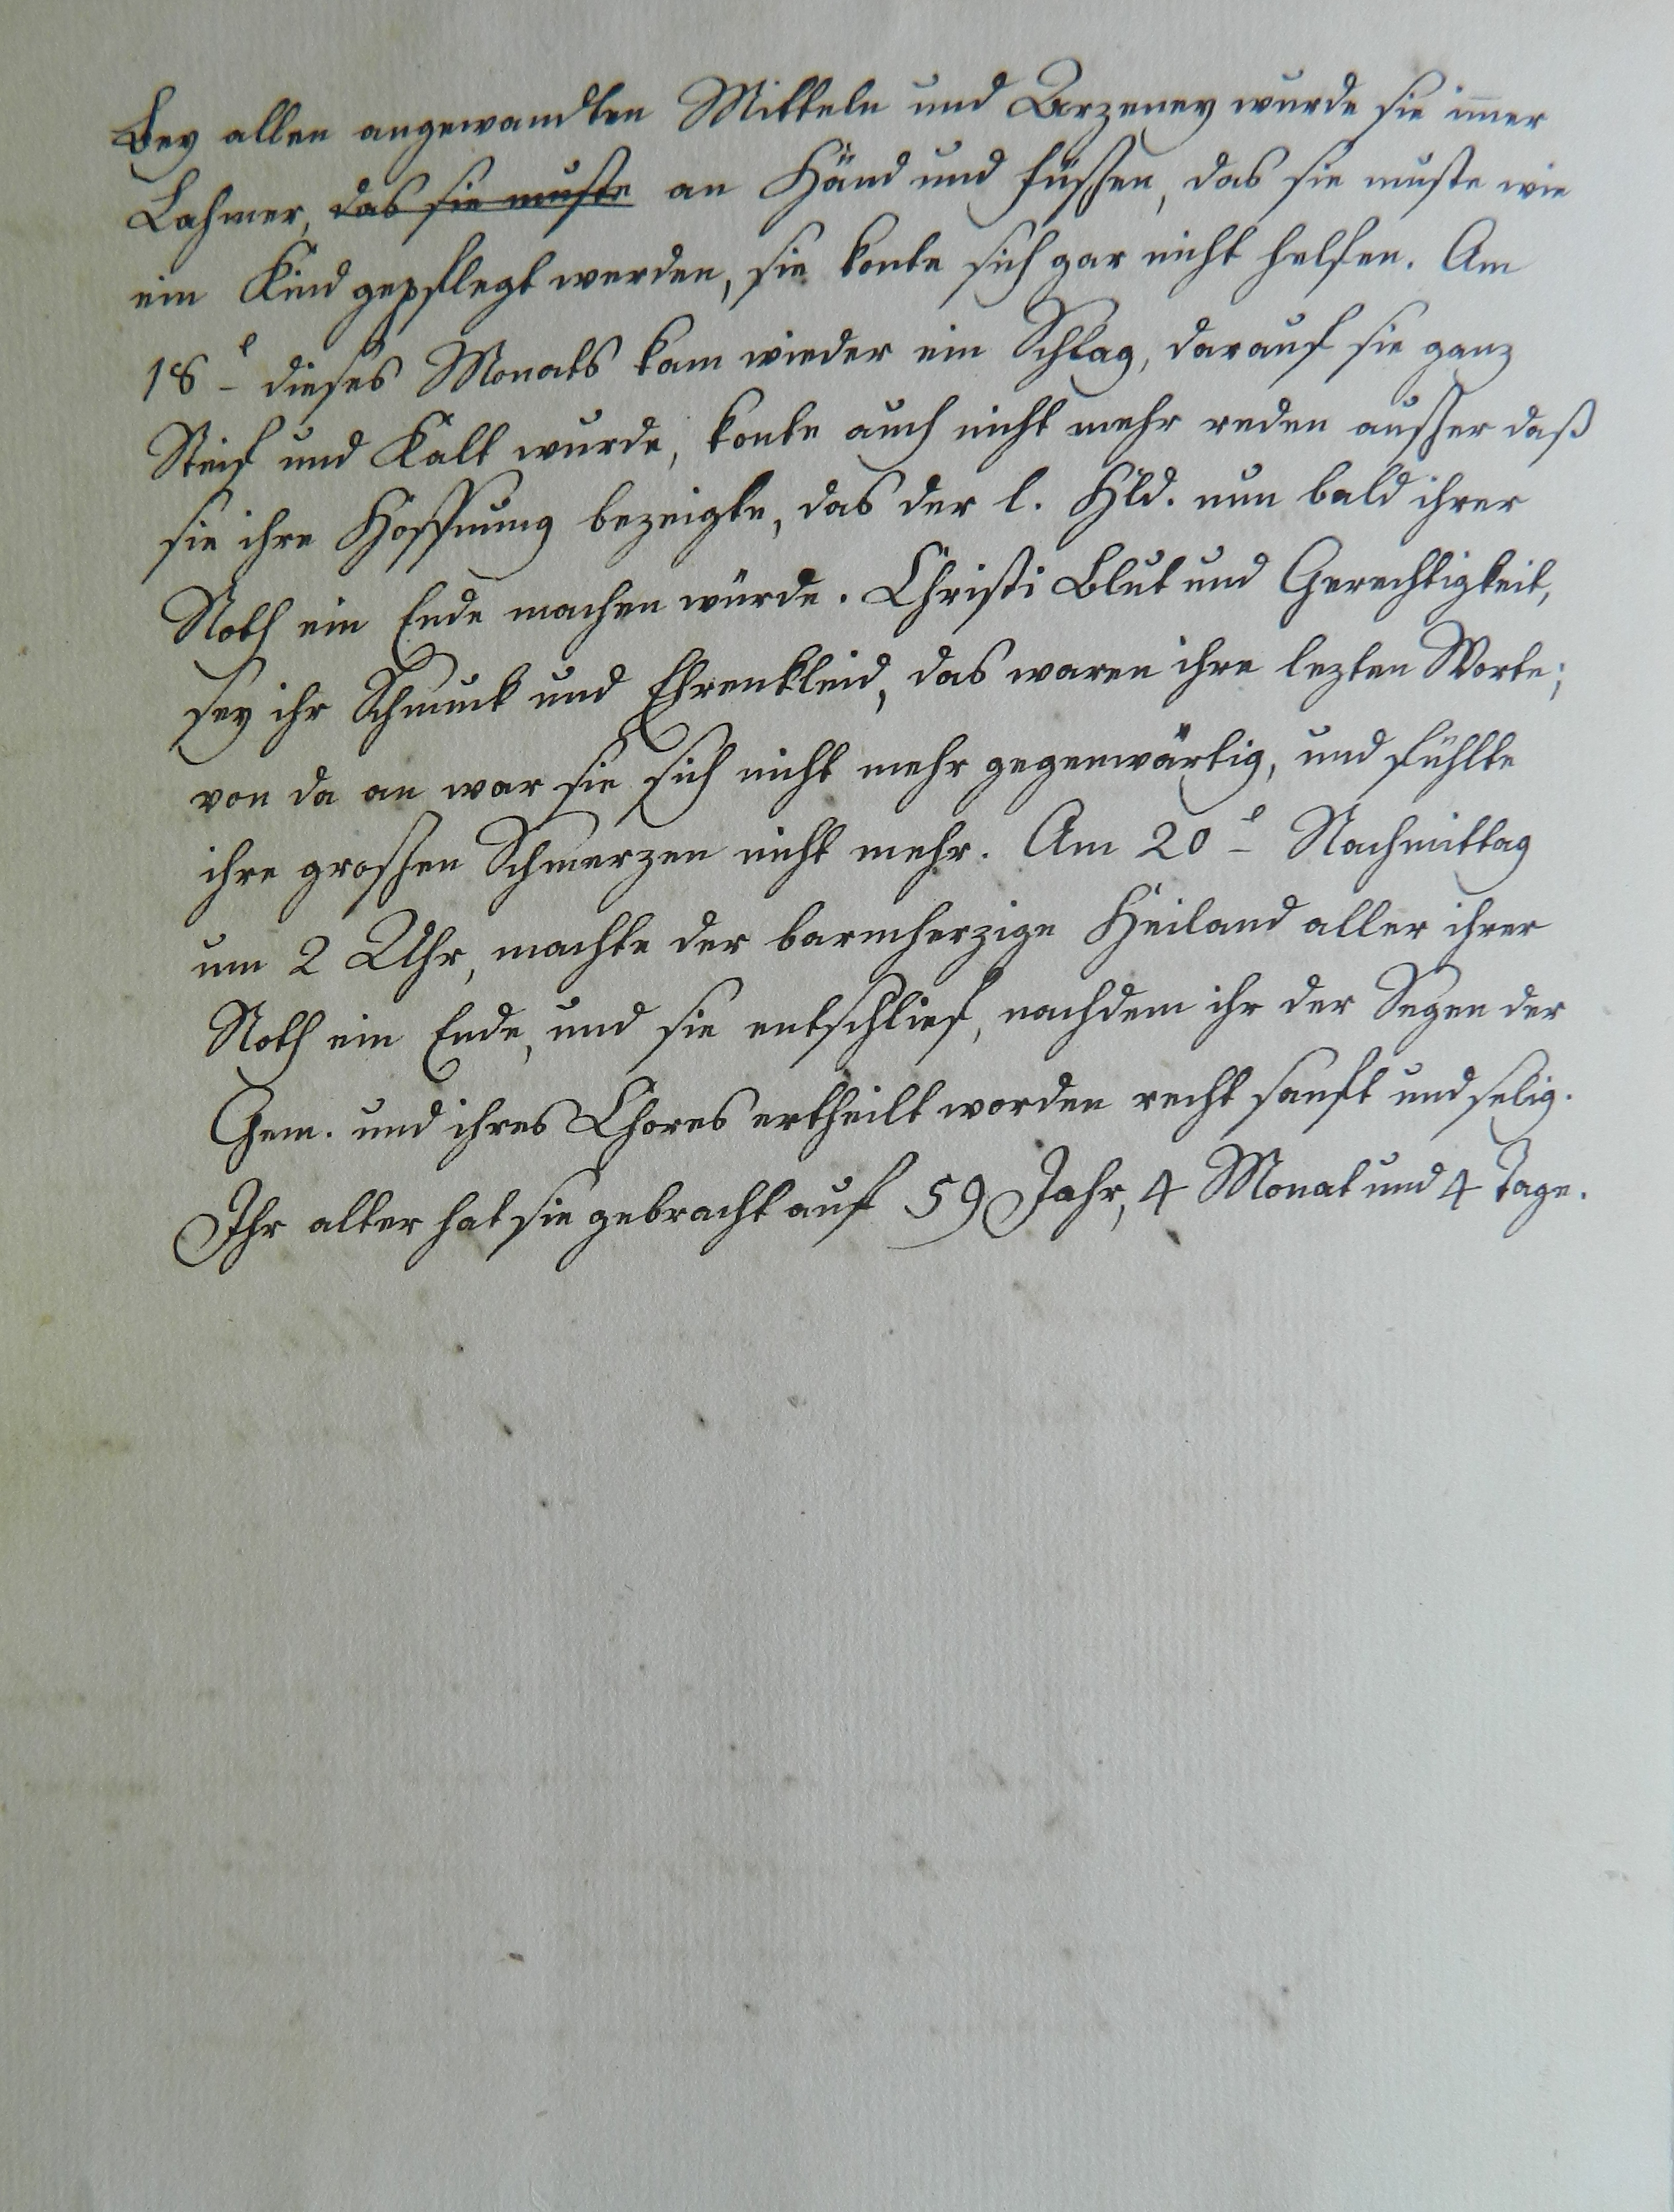 Bey allen angewandten Mitteln und Arzeney wurde sie im̄er
Lahmer, das sie muste an Händ und Füssen, das sie muste wie
ein Kind gepflegt werden, sie konte sich gar nicht helfen. Am
18t dieses Monats kam wieder ein Schlag, darauf sie ganz
Steif und Kalt wurde, konte auch nicht mehr reden ausser daß
sie ihre Hoffnung bezeigte, das der l. Hld. nun bald ihrer
Noth ein Ende machen würde. Christi Blut und Gerechtigkeit,
sey ihr Schmuck und Ehrenkleid, das waren ihre lezten Worte;
von da an war sie sich nicht mehr gegenwärtig, und fühlte
ihre grossen Schmerzen nicht mehr. Am 20t Nachmittag
um 2 Uhr, machte der barmherzige Heiland aller ihrer
Noth ein Ende, und sie entschlief, nachdem ihr der Segen der
Gem. und ihres Chores ertheilt worden recht sanft und selig.
Ihr alter hat sie gebracht auf 59 Jahr, 4 Monat und 4 Tage.